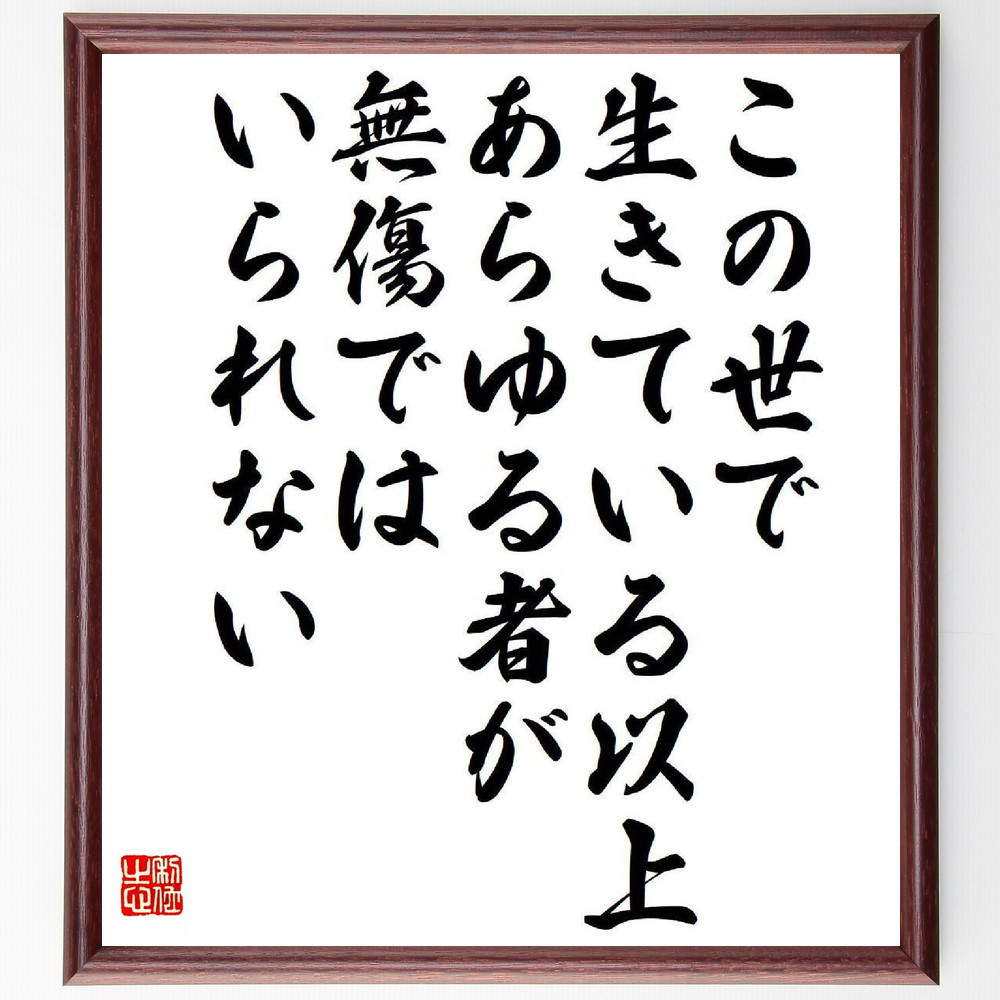 この世で
生きている以上
あらゆる者が
無傷では
いられない